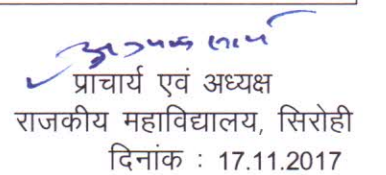 प्राचार्य एवं अध्यक्ष
राजकीय महाविद्यालय, सिरोही
दिनांक : 17.11.2017